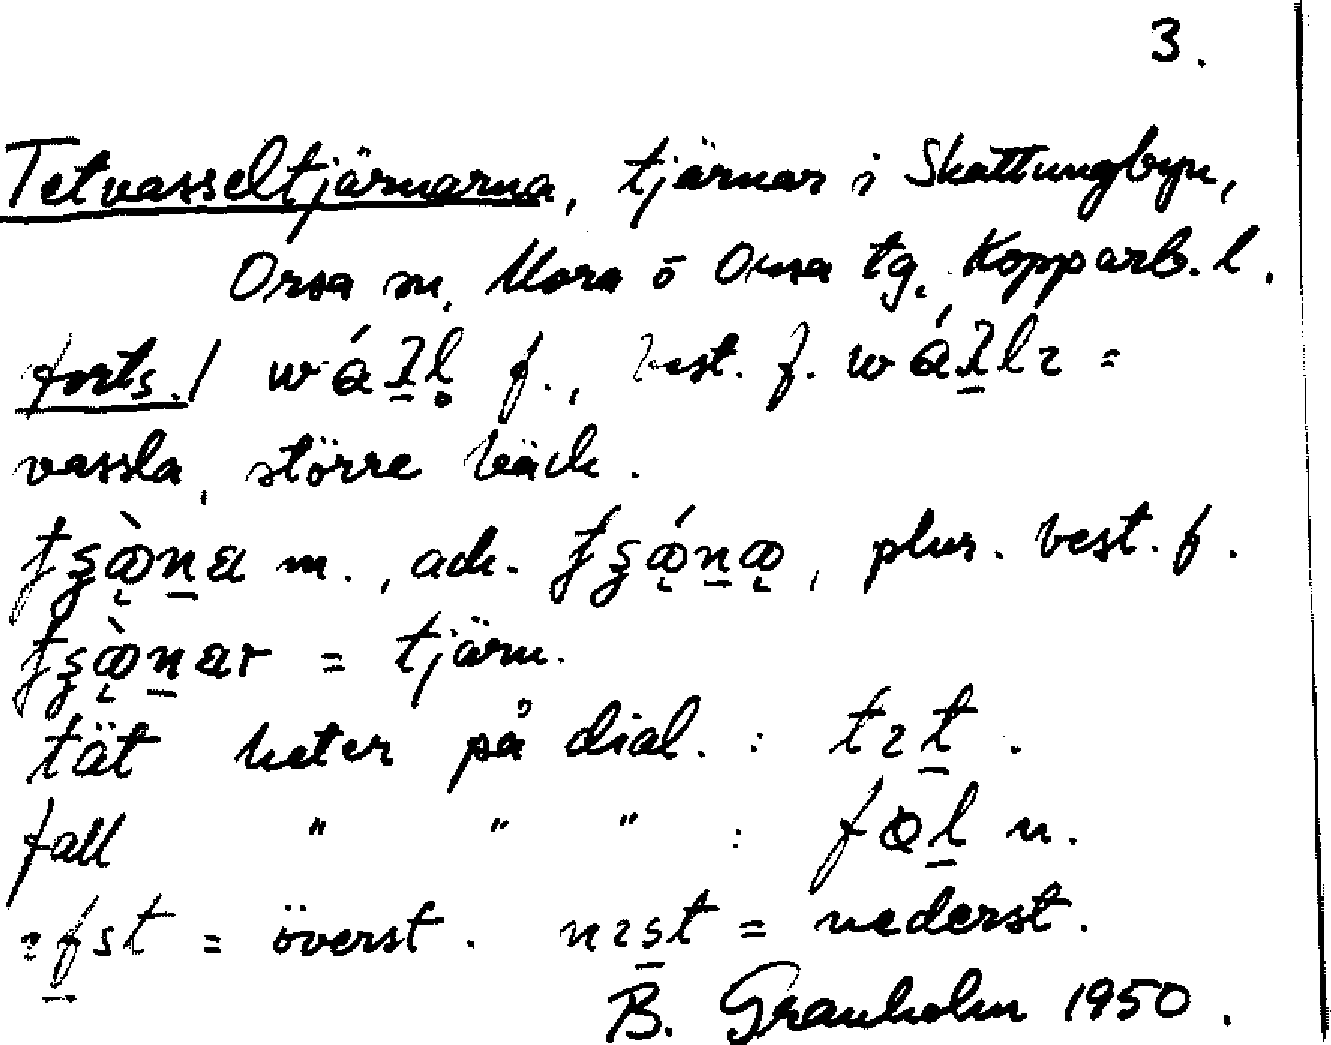 3.
Tetvasseltjärnarna, tjärnar i Skattungbyn,
Orsa sn, Mora o Orsa tg. Kopparb. l.
forts./ f., best. f. =
vassla, större bäck.
m., ack. , plur. best. f.
= tjärn.
tät heter på dial. : tɿt̲.
fall " " " : n.
= överst. nɿs̲t = nederst.
B. Granholm 1950.